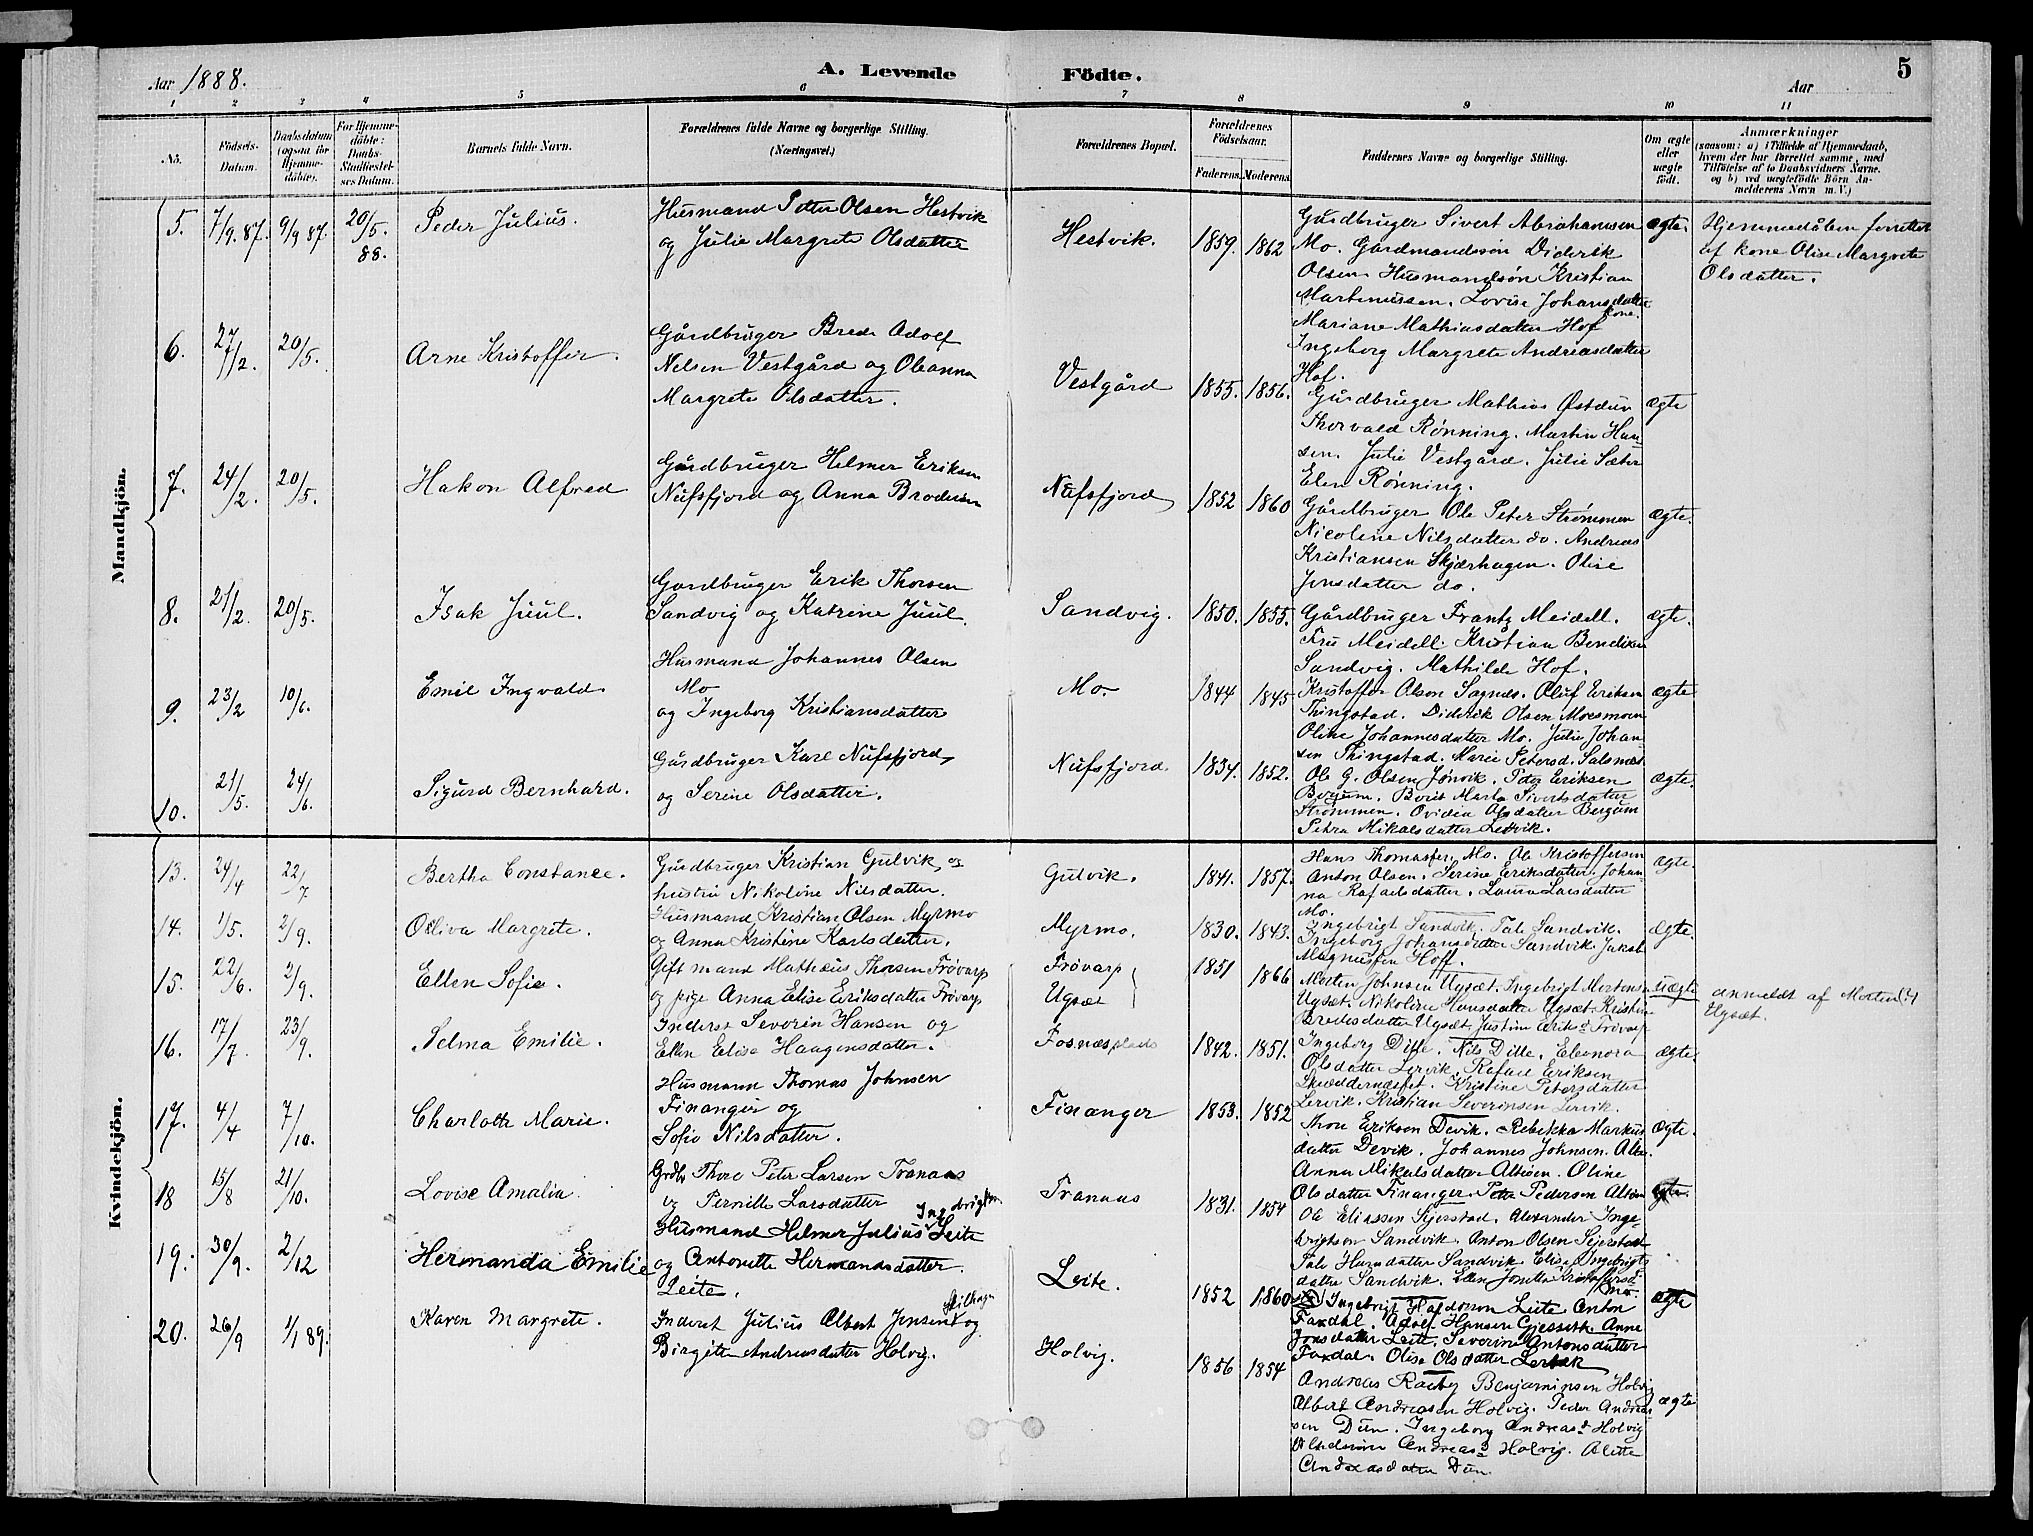 Aar 1888.
A. Levende Födte.
Aar
5
1 2 3 4 5 6 7 8 9 10 11
No.
Födsels-Datum.
Daabsdatum (ogsaa for Hjemme-döbte).
For Hjemme-döbte: Daabs-Stadfæstel-ses Datum.
Barnets fulde Navn.
Forældrenes fulde Navne og borgerlige Stilling. (Næringsvei.)
Forældrenes Bopæl.
Forældrenes Födselsaar.
Faderens. Moderens.
Faddernes Navne og borgerlige Stilling.
Om ægte eller uægte födt.
Anmærkninger
(saasom: a) i Tilfælde af Hjemmedaab, hvem der har forrettet samme, med Tilföielse af to Daabsvidners Navne, og b) ved uægtefödte Börn An-melderens Navn m. V.)
Mandkjön.
5. 7/9.87. 9/9 87. 20/5. 88. Peder Julius.
Husmand Petter Olsen Hestvik
og Julie Margrete Olsdatter
Hestvik. 1859. 1862
Gårdbruger Sivert Abrahamsen
Mo. Gårdmandssøn Diderik
Olsen Husmandsøn Kristian
Martinussen. Lovise Johansdatter
Mariane Mathiasdatter Hof kone.
Ingeborg Margrete Andreasdatter
Hof.
ægte.
Hjemmedåben forrettet
af kone Oline Margrete
Olsdatter.
6. 27/2. 20/5. Arne Kristoffer.
Gårdbruger Brede Adolf
Nelsen Vestgård og Oleanna
Margrete Olsdatter.
Vestgård 1855. 1856.
Gårdbruger Mathias Østduun
Thorvald Rønning. Martin Han-
sen. Julie Vestgård. Julie Sæter
Elen Rønning.
ægte
7. 24/2. 20/5. Hakon Alfred
Gårdbruger Helmer Eriksen
Nufsfjord og Anna Brodersen
Nufsfjord 1852 1860
Gårdbruger Ole Peter Strømmen
Nicoline Nilsdatter do. Andreas
Kristiansen Skjærhagen. Oline
Jensdatter do.
ægte.
8. 21/2. 20/5. Isak Juul.
Gårdbruger Erik Thorsen
Sandvig og Katrine Juul.
Sandvig. 1850. 1855.
Gårdbruger Frantz Meidell.
Fru Meidell. Kristian Bendiksen
Sandvig. Mathilde Hof.
ægte.
9. 23/2 10/6. Emil Ingvald
Husmand Johannes Olsen
Mo
og Ingeborg Kristiansdatter
Mo 1844 1845
Kristoffer Olsen Sagnæs. Oluf Eriksen
Thingstad. Diderik Olsen Moesmoen
Oline Johannesdatter Mo. Julie Johan
sen Thingstad. Marie Petersd. Salsnæs
ægte
10. 21/5. 24/6. Sigurd Bernhard.
Gårdbruger Karl Nufsfjord
og Serine Olsdatter.
Nufsfjord. 1834. 1852.
Ole G. Olsen Jønvik. Peter Eriksen
Bergum. Berit Marta Sivertsdatter
Strømmen. Ovidia Olsdatter Bergum
Petra Mikalsdatter Ledvik.
ægte.
Kvindekjön.
13. 24/4 22/7 Bertha Constance.
Gårdbruger Kristian Gulvik og
hustru Nikoline Nilsdatter.
Gulvik. 1841. 1857.
Hans Thomassen Mo. Ole Kristoffersen
Anton Olsen. Serine Eriksdatter. Johan-
na Rafaelsdatter. Laura Larsdatter
Mo.
ægte.
14. 1/5. 2/9. Oliva Margrete.
Husmand Kristian Olsen Myrmo
og Anna Kristine Karlsdatter.
Myrmo. 1830. 1843.
Ingebrigt Sandvik. Tale Sandvik.
Ingeborg Johansdatter Sandvik Jakob
Magnussen Hoff.
ægte.
15. 22/6. 2/9. Ellen Sofie.
Gift mand Mathæus Thorsen Frövarp
og pige Anna Elise Eriksdatter Frövarp
Frövarp
Ugsæt 1851 1866
Morten Johnsen Ugsæt. Ingebrigt Mortensen
Ugsæt. Nikoline Hansdatter Ugsæt. Kristine
Bredesdatter Ugsæt. Justine Eriksd Frövarp
uægte
anmeldt af Morten
Ugsæt.
16. 17/7. 23/9. Selma Emilie.
Inderst Severin Hansen og
Ellen Elise Haagensdatter.
Fosnæsplads 1842. 1851.
Ingeborg Dille. Nils Dille. Eleonora
Olsdatter Lervik. Rafael Eriksen
Skrædderneset. Kristine Petersdatter
Lervik. Kristian Severinsen Lervik.
ægte.
17. 4/4 7/10. Charlotte Marie.
Husmann Thomas Johnsen
Finanger og
Sofie Nilsdatter.
Finanger 1853. 1852
Thore Eriksen Devik. Rebekka Markus
datter Devik. Johannes Johnsen Alsø.
Anna Mikalsdatter Altisen. Oline
Olsdatter Finanger. Peter Pedersen Altisen
ægte.
18 15/8 21/10. Lovise Amalia.
Grdbr Thore Peter Larsen Tranaas
og Pernille Larsdatter
Tranaas 1831. 1854
Ole Eliassen Sjerstad. Alexander Inge-
brigtsen Sandvik. Anton Olsen Sejerstad
Tale Hansdatter Sandvik. Elise Ingebrigts
datter Sandvik. Ellen Jonette Kristoffersd
Mo.
ægte.
19. 30/9. 2/12 Hermanda Emilie
Ingebrigtsen
Husmand Helmer Julius Leite
og Antonette Hermandsdatter
Leite.
Leite. 1852 1860
Ingebrigt Haldorsen Leite Anton
Faxdal. Adolf Hansen Gjesseth. Anne
Jonsdatter Leite. Severine Antonsdatter
Faxdal. Olise Olsdatter
ægte
20. 26/9 1/1 89. Karen Margrete.
Inderst Julius Albert Jensen og
Birgitte Andreasdatter Holvig.
Holvig. 1856 1854
Andreas Benjaminsen Holvig
Albert Andreasen Holvig. Peder Andrea-
sen Dun. Ingeborg Andreasd Holvig
Andreasd Holvig. Alette
Andreasdatter Dun.
ægte